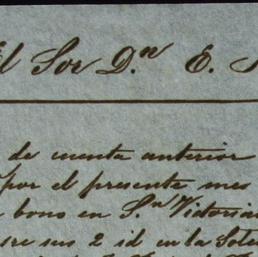 el Sor D.n E.
de cuenta anterior
por el presente mes
bono en S.n Victoria
sus 2 id en la Sole